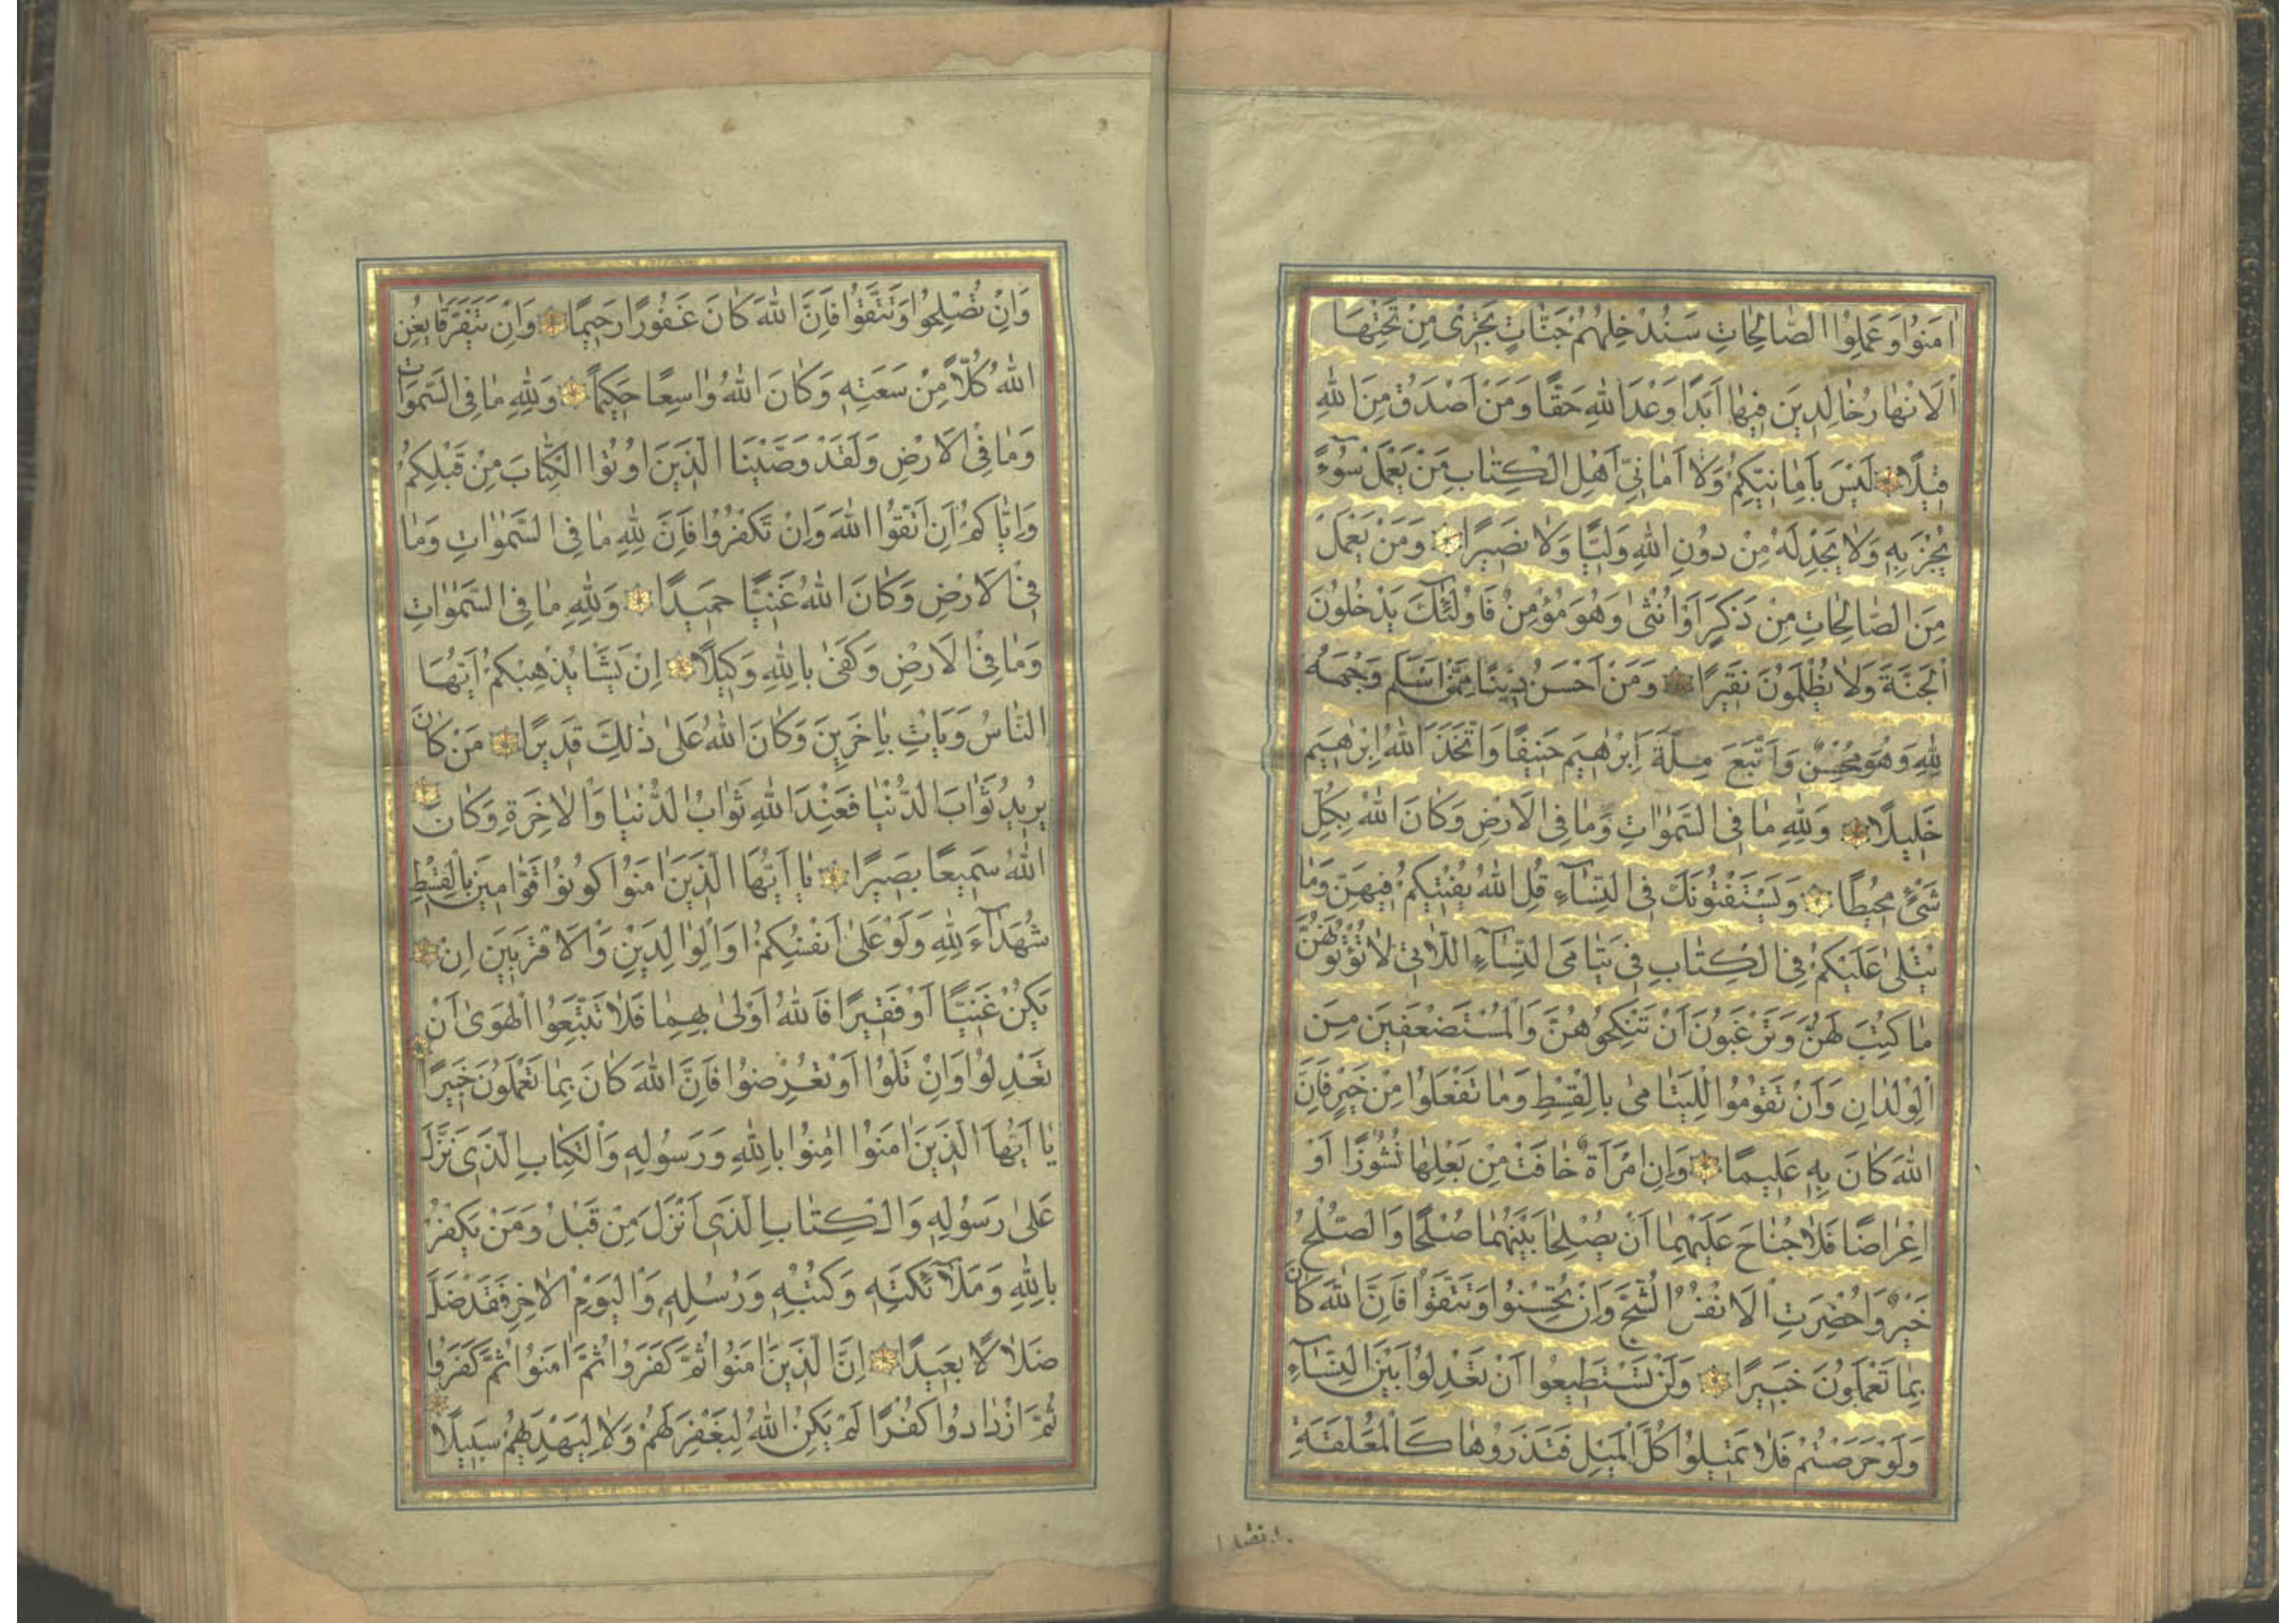 اٰمَنُوا وَعَمِلُوا الصَّالِحَاتِ سَنُدْخِلُهُمْ جَنَّاتٍ تَجْرٖى مِنْ تَحْتِهَا
الْاَنْهَارُ خَالِدٖينَ فٖيهَا اَبَدًا وَعْدَ اللهِ حَقًّا وَمَنْ اَصْدَقُ مِنَ اللهِ
قٖيلًا لَيْسَ بِاَمَانِيِّكُمْ وَلَا اَمَانِىِّ اَهْلِ الْكِتَابِ مَنْ يَعْمَلْ سُوءًا
يُجْزَ بِهٖ وَلَا يَجِدْ لَهُ مِنْ دُونِ اللهِ وَلِيًّا وَلَا نَصٖيرًا وَمَنْ يَعْمَلْ
مِنَ الصَّالِحَاتِ مِنْ ذَكَرٍ اَوْ اُنْثٰى وَهُوَ مُؤْمِنٌ فَاُولٰئِكَ يَدْخُلُونَ
الْجَنَّةَ وَلَا يُظْلَمُونَ نَقٖيرًا وَمَنْ اَحْسَنُ دٖينًا مِمَّنْ اَسْلَمَ وَجْهَهُ
لِلهِ وَهُوَ مُحْسِنٌ وَاتَّبَعَ مِلَّةَ اِبْرٰهٖيمَ حَنٖيفًا وَاتَّخَذَ اللهُ اِبْرٰهٖيمَ
خَلٖيلًا وَلِلهِ مَا فِى السَّمٰوَاتِ وَمَا فِى الْاَرْضِ وَكَانَ اللهُ بِكُلِّ
شَىْءٍ مُحٖيطًا وَيَسْتَفْتُونَكَ فِى النِّسَاءِ قُلِ اللهُ يُفْتٖيكُمْ فٖيهِنَّ وَمَا
يُتْلٰى عَلَيْكُمْ فِى الْكِتَابِ فٖى يَتَامَى النِّسَاءِ اللَّاتٖى لَا تُؤْتُونَهُنَّ
مَا كُتِبَ لَهُنَّ وَتَرْغَبُونَ اَنْ تَنْكِحُوهُنَّ وَالْمُسْتَضْعَفٖينَ مِنَ
الْوِلْدَانِ وَاَنْ تَقُومُوا لِلْيَتَامٰى بِالْقِسْطِ وَمَا تَفْعَلُوا مِنْ خَيْرٍ فَاِنَّ
اللهَ كَانَ بِهٖ عَلٖيمًا وَاِنِ امْرَاَةٌ خَافَتْ مِنْ بَعْلِهَا نُشُوزًا اَوْ
اِعْرَاضًا فَلَا جُنَاحَ عَلَيْهِمَا اَنْ يُصْلِحَا بَيْنَهُمَا صُلْحًا وَالصُّلْحُ
خَيْرٌ وَاُحْضِرَتِ الْاَنْفُسُ الشُّحَّ وَاِنْ تُحْسِنُوا وَتَتَّقُوا فَاِنَّ اللهَ كَانَ
بِمَا تَعْمَلُونَ خَبٖيرًا وَلَنْ تَسْتَطٖيعُوا اَنْ تَعْدِلُوا بَيْنَ النِّسَاءِ
وَلَوْ حَرَصْتُمْ فَلَا تَمٖيلُوا كُلَّ الْمَيْلِ فَتَذَرُوهَا كَالْمُعَلَّقَةِ
وَاِنْ تُصْلِحُوا وَتَتَّقُوا فَاِنَّ اللهَ كَانَ غَفُورًا رَحٖيمًا وَاِنْ يَتَفَرَّقَا يُغْنِ
اللهُ كُلًّا مِنْ سَعَتِهٖ وَكَانَ اللهُ وَاسِعًا حَكٖيمًا وَلِلهِ مَا فِى السَّمٰوَاتِ
وَمَا فِى الْاَرْضِ وَلَقَدْ وَصَّيْنَا الَّذٖينَ اُوتُوا الْكِتَابَ مِنْ قَبْلِكُمْ
وَاِيَّاكُمْ اَنِ اتَّقُوا اللهَ وَاِنْ تَكْفُرُوا فَاِنَّ لِلهِ مَا فِى السَّمٰوَاتِ وَمَا
فِى الْاَرْضِ وَكَانَ اللهُ غَنِيًّا حَمٖيدًا وَلِلهِ مَا فِى السَّمٰوَاتِ
وَمَا فِى الْاَرْضِ وَكَفٰى بِاللهِ وَكٖيلًا اِنْ يَشَاْ يُذْهِبْكُمْ اَيُّهَا
النَّاسُ وَيَاْتِ بِاٰخَرٖينَ وَكَانَ اللهُ عَلٰى ذٰلِكَ قَدٖيرًا مَنْ كَانَ
يُرٖيدُ ثَوَابَ الدُّنْيَا فَعِنْدَ اللهِ ثَوَابُ الدُّنْيَا وَالْاٰخِرَةِ وَكَانَ
اللهُ سَمٖيعًا بَصٖيرًا يَا اَيُّهَا الَّذٖينَ اٰمَنُوا كُونُوا قَوَّامٖينَ بِالْقِسْطِ
شُهَدَاءَ لِلهِ وَلَوْ عَلٰى اَنْفُسِكُمْ اَوِ الْوَالِدَيْنِ وَالْاَقْرَبٖينَ اِنْ
يَكُنْ غَنِيًّا اَوْ فَقٖيرًا فَاللهُ اَوْلٰى بِهِمَا فَلَا تَتَّبِعُوا الْهَوٰى اَنْ
تَعْدِلُوا وَاِنْ تَلْوُا اَوْ تُعْرِضُوا فَاِنَّ اللهَ كَانَ بِمَا تَعْمَلُونَ خَبٖيرًا
يَا اَيُّهَا الَّذٖينَ اٰمَنُوا اٰمِنُوا بِاللهِ وَرَسُولِهٖ وَالْكِتَابِ الَّذٖى نَزَّلَ
عَلٰى رَسُولِهٖ وَالْكِتَابِ الَّذٖى اَنْزَلَ مِنْ قَبْلُ وَمَنْ يَكْفُرْ
بِاللهِ وَمَلٰئِكَتِهٖ وَكُتُبِهٖ وَرُسُلِهٖ وَالْيَوْمِ الْاٰخِرِ فَقَدْ ضَلَّ
ضَلَالًا بَعٖيدًا اِنَّ الَّذٖينَ اٰمَنُوا ثُمَّ كَفَرُوا ثُمَّ اٰمَنُوا ثُمَّ كَفَرُوا
ثُمَّ ازْدَادُوا كُفْرًا لَمْ يَكُنِ اللهُ لِيَغْفِرَ لَهُمْ وَلَا لِيَهْدِيَهُمْ سَبٖيلًا